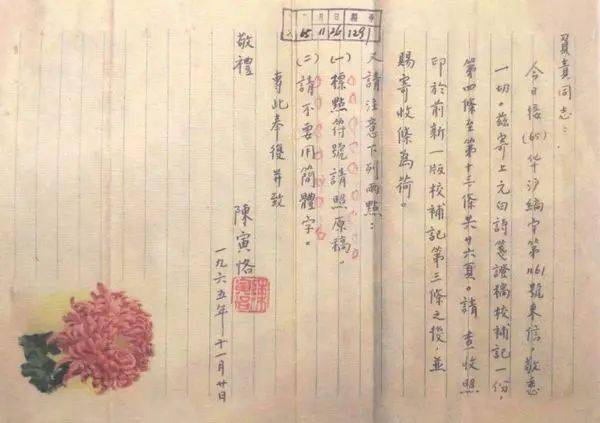 負責同志：
今日接(65)华沪编字第1161號来信，敬悉
一切。兹寄上元白詩箋證稿校補記一份，
第四條至第十三條共廿六頁。請 查收照
印於前新一版校補記第三條之後，並
賜寄收條為荷。
又請注意下列兩點：
(一)標點符號請照原稿。
(二)請不要用簡體字。
專此奉復并致
敬禮
陳寅恪
一九六五年十一月廿日
月 日 編號
65 11 26 1291